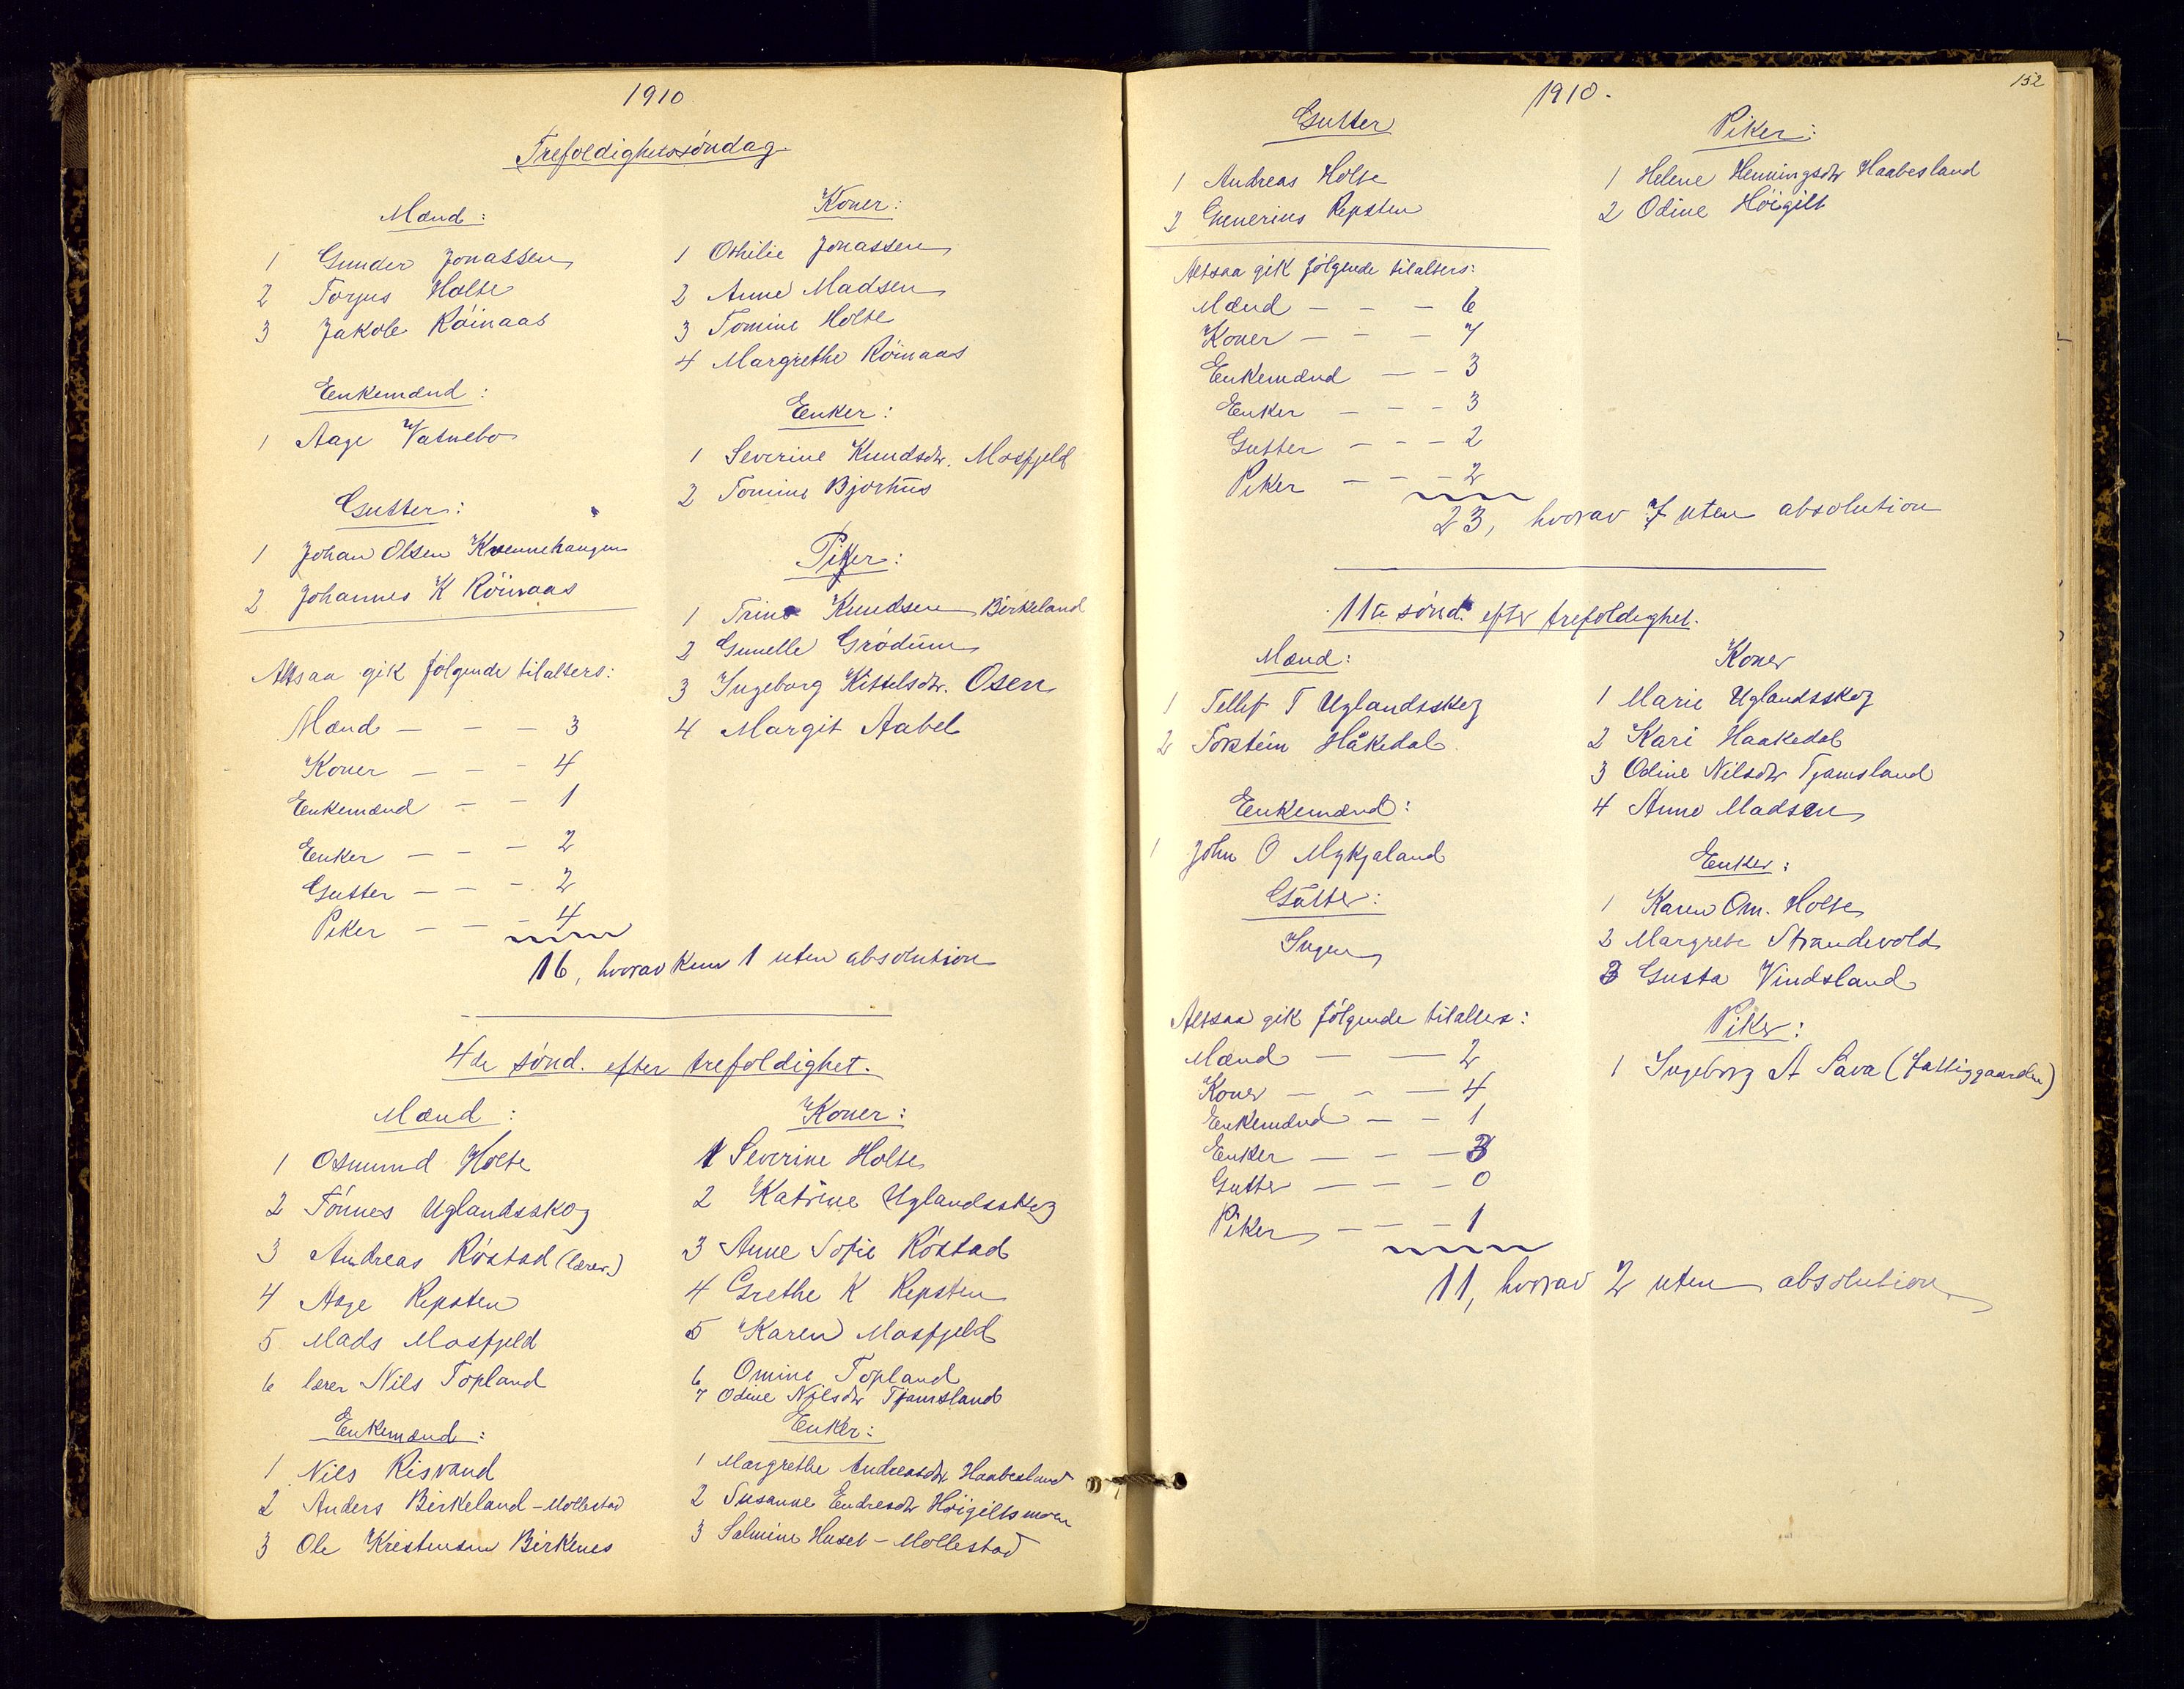 1910
Trefoldighetssöndag
Mænd:
1 Gunder Jonassen
2 Torjus Holte
3 Jakob Röinaas
Enkemænd:
1 Aage Vatnebo
Gutter:
1 Johan Olsen Kvennehaugen
2 Johannes K Röinaas
Altsaa gik følgende tilalters:
Mænd — — — 3
Koner — — — 4
Enkemænd — — 1
Enker — — — 2
Gutter — — — 2
Piker — — — 4
16, hvorav kun 1 uten absolution
Koner:
1 Othilie Jonassen
2 Anne Madsen
3 Tomine Holte
4 Margrethe Röinaas
Enker:
1 Severine Knudsdtr. Mosfjeld
2 Tomine Bjorhus
Piker:
1 Trine Knudsen Birkeland
2 Gunelle Grödum
3 Ingeborg Kittelsdtr. Osen
4 Margit Aabel
4de sönd. efter trefoldighet.
Mænd:
1 Osmund Holte
2 Tönnes Uglandsskog
3 Andreas Röstad (lærer)
4 Aage Repsten
5 Mads Mosfjeld
6 lærer Nils Topland
Enkemænd:
1 Nils Risvand
2 Anders Birkeland - Mollestad
3 Ole Kristensen Birkenes
Koner:
1 Severine Holte
2 Katrine Uglandsskog
3 Anne Sofie Röstad
4 Grethe K Repsten
5 Karen Mosfjeld
6 Omine Topland
7 Odine Nilsdtr Tjamsland
Enker:
1 Margrethe Andreasdtr Haabesland
2 Susanne Endresdtr Höigiltsmoen
3 Salmine Huset - Mollestad
152
1910.
Gutter
1 Andreas Holte
2 Gunerius Repsten
Piker:
1 Helene Henningsdtr Haabesland
2 Odine Höigilt
Altsaa gik følgende tilalters:
Mænd — — — 6
Koner — — — 7
Enkemænd — — 3
Enker — — — 3
Gutter — — — 2
Piker — — — 2
23, hvorav 7 uten absolution
11te sönd. efter trefoldighet.
Mænd:
1 Tellef T Uglandsskog
2 Torstein Håkedal
Enkemænd:
1 John O Mykjaland
Gutter:
Ingen
Koner
1 Marie Uglandsskog
2 Kari Haakedal
3 Odine Nilsdtr Tjamsland
4 Anne Madsen
Enker:
1 Karen Om. Holte
2 Margrete Strandevold
3 Gusta Vindsland
Piker:
1 Ingeborg A Lava (Fattiggaarden)
Altsaa gik følgende tilalters:
Mænd — — 2
Koner — — — 4
Enkemænd — — 1
Enker — — — 3
Gutter — — — 0
Piker — — — 1
11, hvorav 2 uten absolution